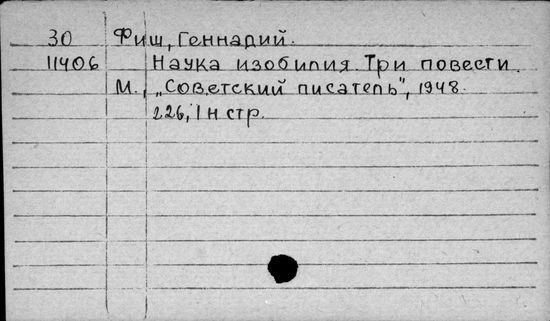 30 Фиш, Геннадий.
11406 Наука изобилия. Три повести.
М., „Советский писатель", 1948.
226, 1 н стр.